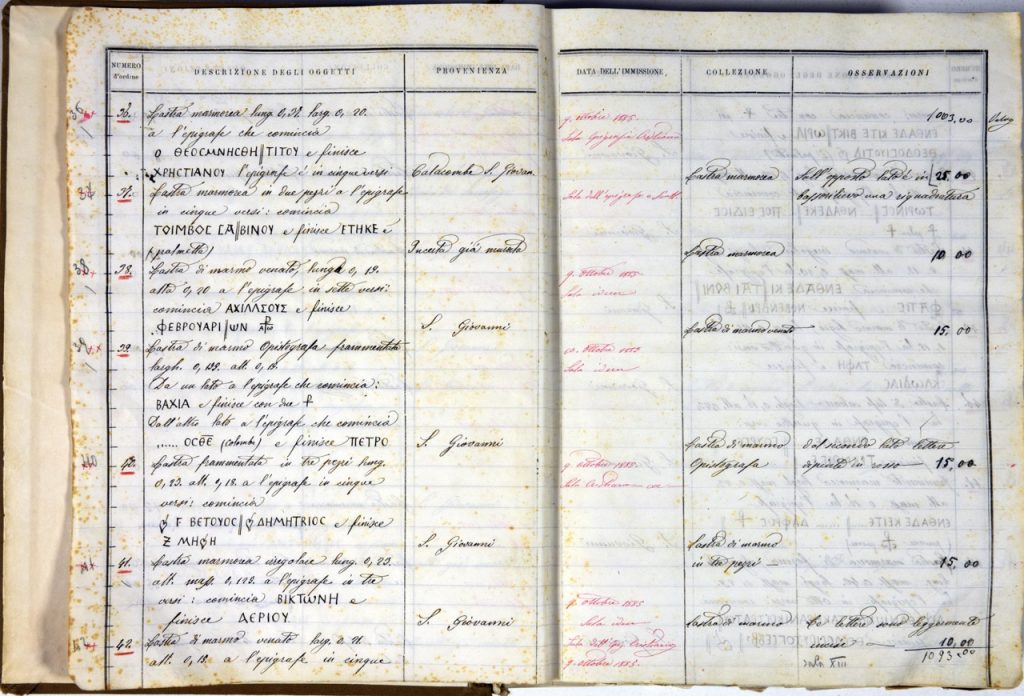 NUMERO d'ordine
DESCRIZIONE DEGLI OGGETTI
PROVENIENZA
DATA DELL'IMMISSIONE
COLLEZIONE
OSSERVAZIONI
1003,00
36 36. Lastra marmorea lung. 0,32 larg. 0,20.
à l'epigrafe che comincia
Ο ΘΕΟСΜΝΗСΘΗ//ΤΙΤΟΥ e finisce
ΧΡΗСΤΙΑΝΟΥ l'epigrafe é in cinque versi
Catacombe S. Giovan.
9. ottobre 1885
Sala Epigrafia Cristiana
Lastra marmorea
Sull'opposto lato è in
25,00
37 37. Lastra marmorea in due pezzi à l'epigrafe
in cinque versi: comincia
ΤΟΙΜΒΟС СΑ//ΒΙΝΟΥ e finisce ΕΤΗΚΕ e
(palmetta)
Incerta già murata
Lastra marmorea
10 00
38 38. Lastra di marmo venato, lunga 0,19.
alta 0,20 à l'epigrafe in sette versi:
comincia ΑΧΙΛΛСΟΥС e finisce
ΦΕΒΡΟΥΑΡΙ//ΩΝ
S. Giovanni
9. ottobre 1885
Sala idem
Lastra di marmo venato
15.00
39 39. Lastra di marmo Opistografa frammentata
largh. 0,192. alt. 0,18.
Da un lato à l'epigrafe che comincia:
ΒΑΧΙΑ e finisce con due
Dall'altro lato à l'epigrafe che comincia
...... ΟСΘΕ (colomba) e finisce ΠΕΤΡΟ
S. Giovanni
Sala idem
Lastra di marmo
Opistografa
dal secondo lato lettere
dipinte in rosso
15,00
40 40. Lastra frammentata in tre pezzi lung.
0,23. alt. 0,18. à l'epigrafe in cinque
versi: comincia
Γ ΒΕΤΟΥΟС// ΔΗΜΗΤΡΙΟС e finisce
Ζ ΜΗΦΗ
S. Giovanni
9. ottobre 1885.
Lastra di marmo
in tre pezzi
15,00
41 41. Lastra marmorea irregolare lung. 0,23.
alt. mass. 0,122. à l'epigrafe in tre
versi: comincia ΒΙΚΤΩΝΗ e
finisce ΔΕΡΙΟΥ.
S. Giovanni
9. ottobre 1885
Sala idem
Lastra di marmo
Le lettere sono leggermente
incise
10,00
1093.00
42. Lastra di marmo venato larg. 0.21.
alt. 0,18. à l'epigrafe in cinque
Sala dell'Epig. Cristiana
9. ottobre 1885.